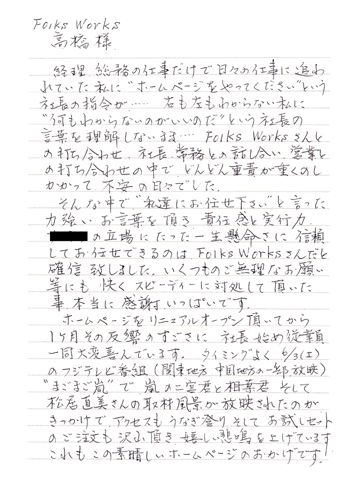 Folks Works
高橋様
経理 総務の仕事だけで日々の仕事に追わ
れていた私に"ホームページをやってください"という
社長の指令が‥‥ 右も左もわからない私に
"何もわからないのがいいのだ"という社長の
言葉を理解しないまま‥‥ Folks Worksさんと
の打ち合わせ、社長、常務との話し合い、営業と
の打ち合わせの中で、どんどん重責が重くのし
かかって、不安の日々でした。
そんな中で"私達にお任せ下さい"と言った
力強いお言葉を頂き、責任感と実行力、
の立場にたった一生懸命さに信頼
してお任せできるのは、Folks Worksさんだと
確信致しました。いくつものご無理なお願い
等にも快くスピーディーに対処して頂いた
事、本当に感謝いっぱいです。
ホームページをリニューアルオープン頂いてから
1ヶ月その反響のすごさに社長始め従業員
一同大変喜んでいます。タイミングよく6/3(土)
のフジテレビ番組(関東地方 中国地方の一部放映)
"まごまご嵐"で嵐の二宮君と相葉君そして
松居直美さんの取材風景が放映されたのが
きっかけで、アクセスもうなぎ登りそしてお試しセット
のご注文も沢山頂き嬉しい悲鳴を上げています
これもこの素晴しいホームページのおかげです!